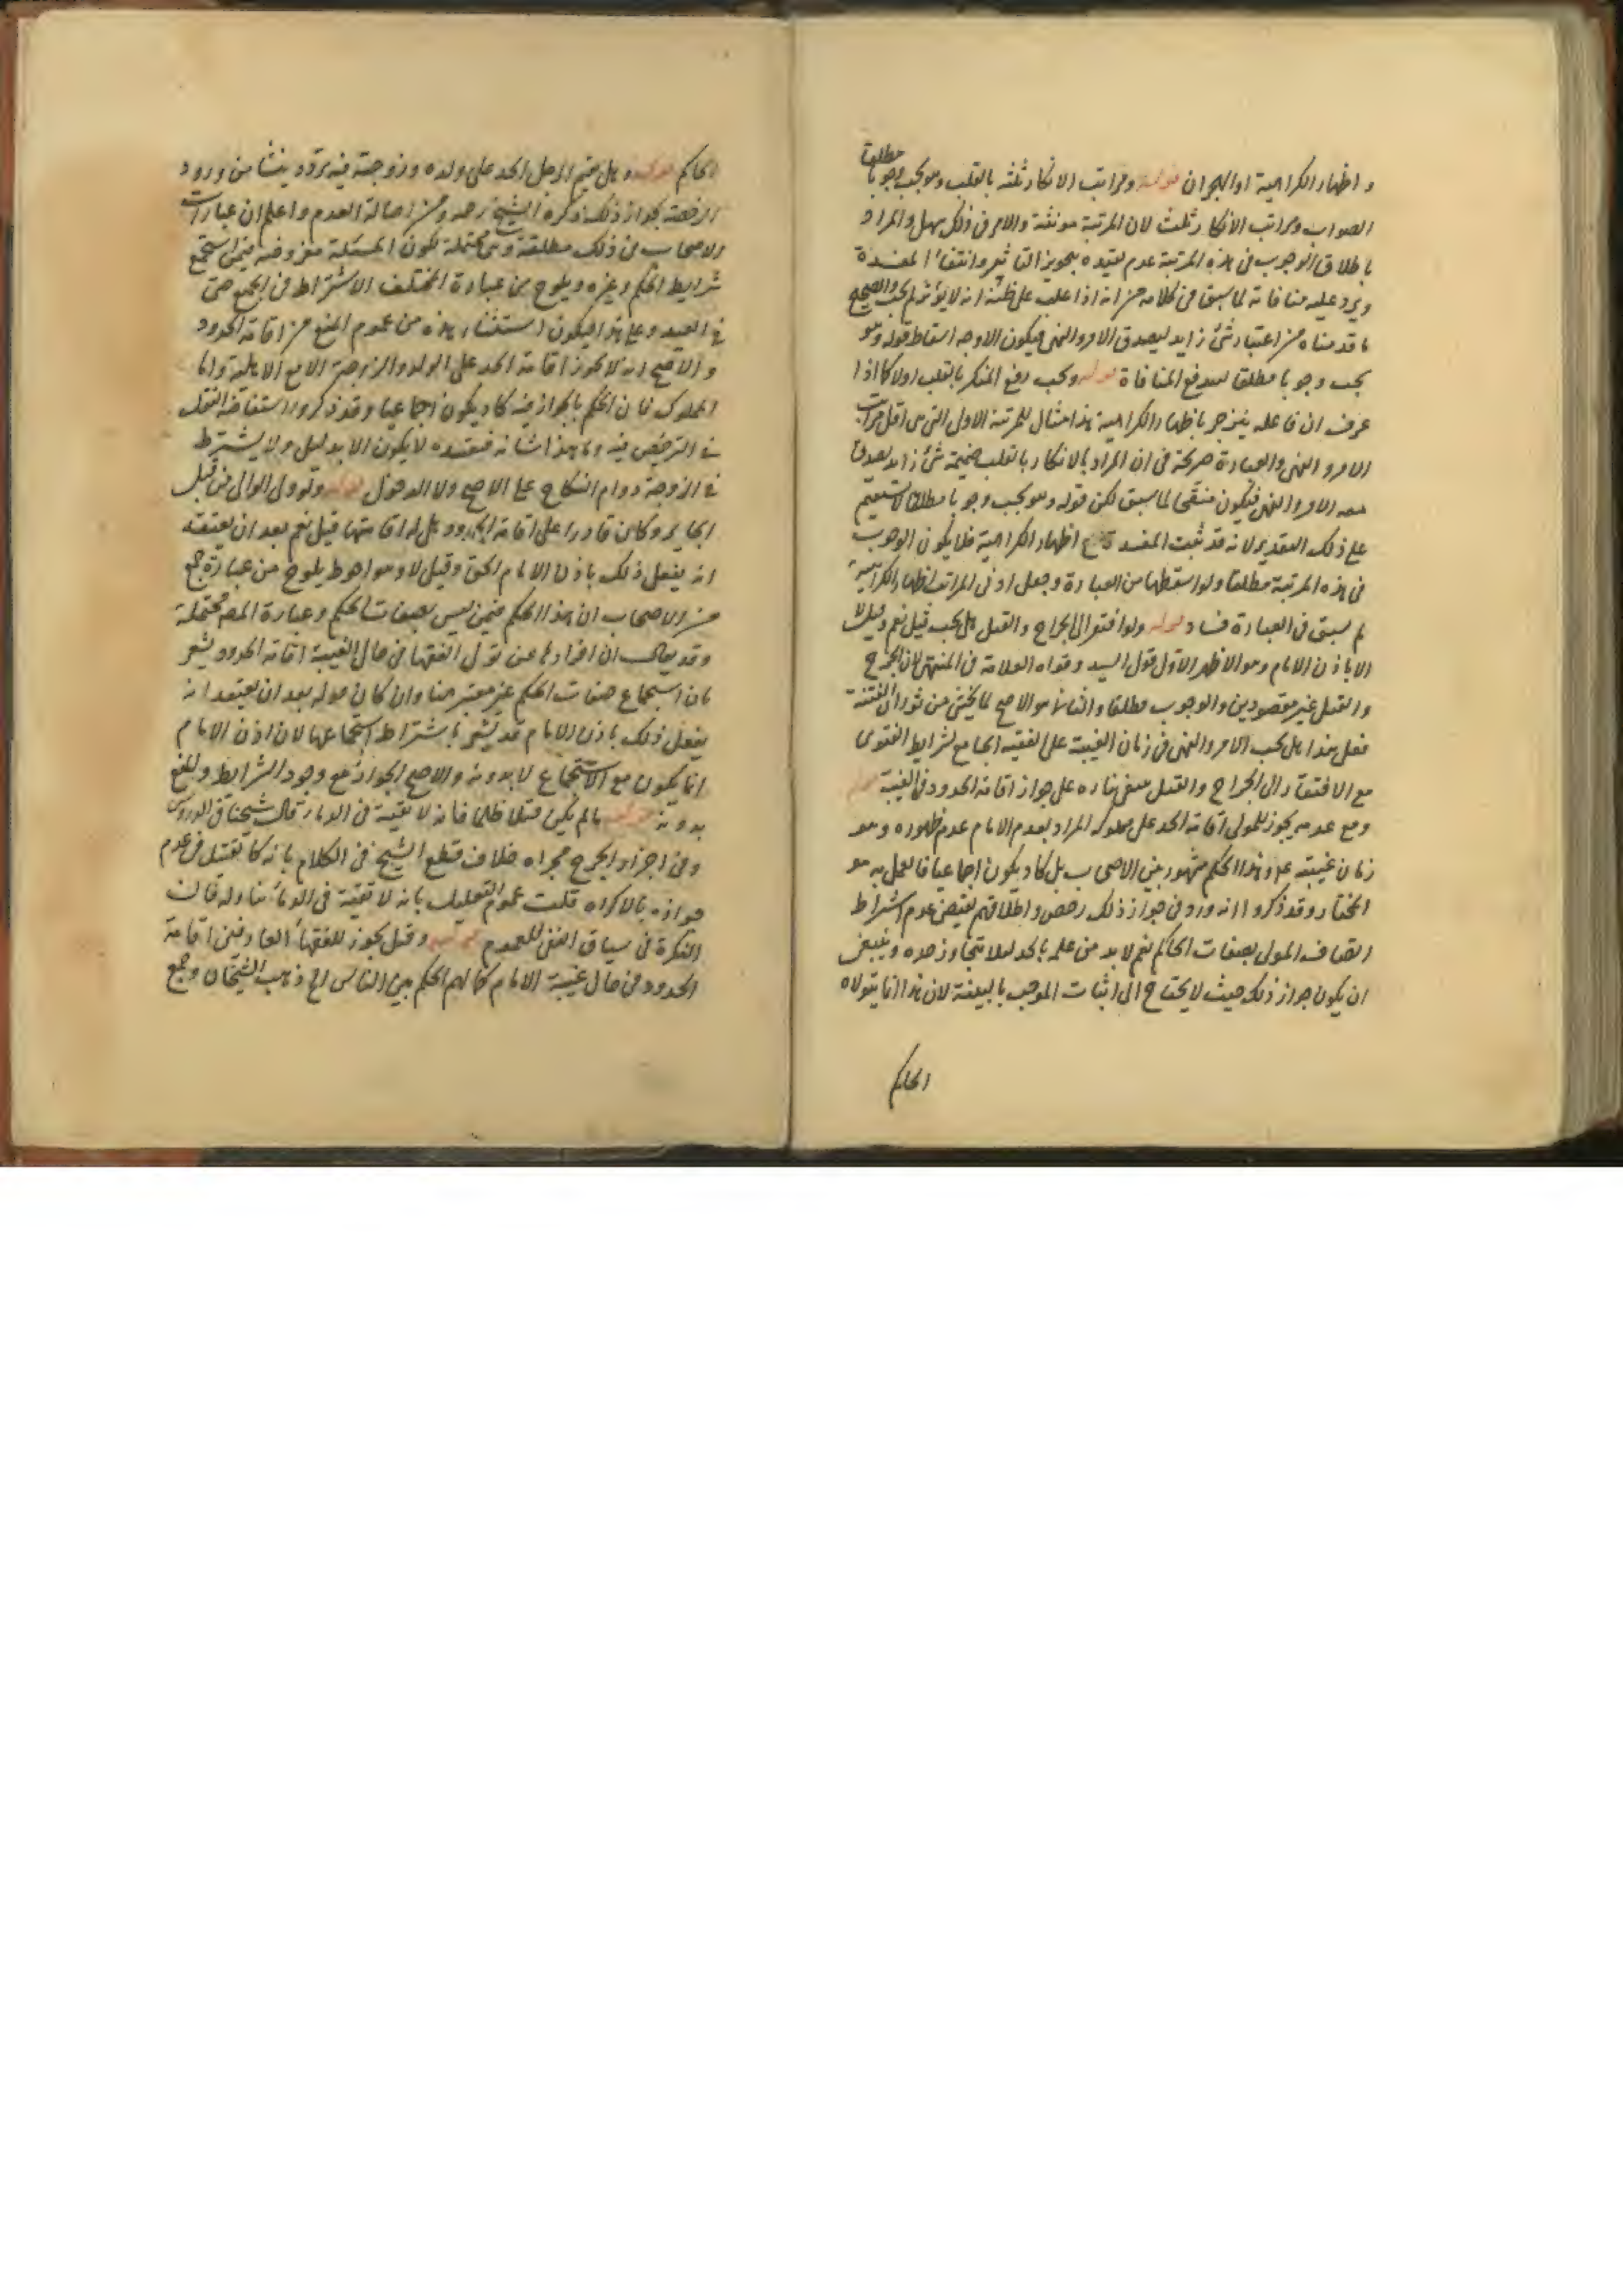 و اظهار الكراهية او الهجران قوله ومراتب الانكار ثلثه بالقلب وهو يجب وجوبا مطلقا
الصواب ومراتب الانكار ثلث لان المرتبة مونثة والامر في ذلك سهل والمراد
باطلاق الوجوب في هذه المرتبة عدم تقييده بتجويز التاثير وانتفاء المفسدة
ويرد عليه منافاته لما سبق في كلامه من انه اذا غلب على ظنه انه لا يؤثر لم يجب والصحيح
ما قدمناه من اعتبار شئ زايد ليصدق الامر والنهي فيكون الاوجه اسقاط قوله وهو
يجب وجوبا مطلقا ليندفع المنافاة قوله ويجب دفع المنكر بالقلب اولا كما اذا
عرف ان فاعله ينزجر باظهار الكراهية هذا مثال للمرتبة الاولى التي هي اقل مراتب
الامر و النهي والعبارة صريحة في ان المراد بالانكار بالقلب ضميمة شئ زايد يصدق
معه الامر والنهي فيكون منقحا لما سبق لكن قوله وهو يجب وجوبا مطلقا لا يستقيم
على ذلك التقدير لانه قد ثبت المفسدة مع اظهار الكراهية فلا يكون الوجوب
في هذه المرتبة مطلقا ولو اسقطها من العبارة وجعل ادنى المراتب اظهار الكراهية
لم يبق في العبارة فساد قوله ولو افتقر الى الجراح والقتل هل يجب قيل نعم وقيل لا
الا باذن الامام وهو الاظهر الاول قول السيد وقواه العلامة في المنتهى لان الجرح
والقتل غير مقصودين والوجوب مطلقا والثاني هو الاصح لما يخشى من ثوران الفتنة
فعلى هذا هل يجب الامر والنهي في زمان الغيبة على الفقيه الجامع لشرايط الفتوى
مع الافتقار الى الجراح والقتل ينبغي بناره على جواز اقامة الحدود في الغيبة قوله
ومع عدمه يجوز للمولى اقامة الحد على مملوكه المراد بعدم الامام عدم ظهوره وهو
زمان غيبته ع وهذا الحكم مشهور بين الاصحاب بل كاد يكون اجماعيا فالعمل به هو
المختار وقد ذكروا انه ورد في جواز ذلك رخص واطلاقهم يقتضي عدم اشتراط
اتصاف المولى بصفات الحاكم نعم لا بد من علمه بالحد لئلا يتجاوز حده وينبغي
ان يكون جواز ذلك حيث لا يحتاج الى اثبات الموجب بالبينة لان هذا انما يتولاه
الحاكم
الحاكم قوله وهل يقيم الرجل الحد على ولده وزوجته فيه تردد ينشا من ورود
الرخصة بجواز ذلك ذكره الشيخ رحمه ومن اصالة العدم واعلم ان عبارات
الاصحاب في ذلك مطلقة وهي محتملة لكون المسئلة مفروضة فيمن استجمع
شرايط الحكم وغيره ويلوح من عبارة المختلف الاشتراط في الجميع حتى
في العبد وعلى هذا فيكون استثناء هذه من عموم المنع من اقامة الحدود
والاصح انه لا يجوز اقامة الحد على الولد والزوجة الا مع الاهلية واما
المملوك فان الحكم بالجواز فيه كاد يكون اجماعيا وقد ذكروا استفاضة النقل
في الترخيص فيه وما هذا شانه فتقييده لا يكون الا بدليل ولا يشترط
في الزوجة دوام النكاح على الاصح ولا الدخول قوله ولو ولى الوالي من قبل
الجاير وكان قادرا على اقامة الحدود هل له اقامتها قيل نعم بعد ان يعتقد
انه يفعل ذلك باذن الامام الحق وقيل لا وهو احوط يلوح من عبارة جمع
من الاصحاب ان هذا الحكم فيمن ليس بصفات الحكم وعبارة المصر محتملة
وقد يقال ان افرادها عن تولى الفقها في حال الغيبة اقامة الحدود يشعر
بان استجماع صفات الحكم غير معتبر هنا وان كان قوله بعد ان يعتقد انه
يفعل ذلك باذن الامام قد يشعر باشتراط استجماعها لان اذن الامام
انما يكون مع الاستجماع لا بدونه والاصح الجواز مع وجود الشرايط والمنع
بدونه قوله ما لم يكن قتلا ظلما فانه لا تقية في الدماء قال شيخنا في الدروس
وفي اجراء الجرح مجراه خلاف قطع الشيخ في الكلام بانه كالقتل في عدم
جوازه بالاكراه قلت عموم التعليل بانه لا تقية في الدماء يتناوله فان
النكرة في سياق النفي للعموم قوله وقيل يجوز للفقهاء العارفين اقامة
الحدود في حال غيبة الامام كما لهم الحكم بين الناس الخ ذهب الشيخان وجمع